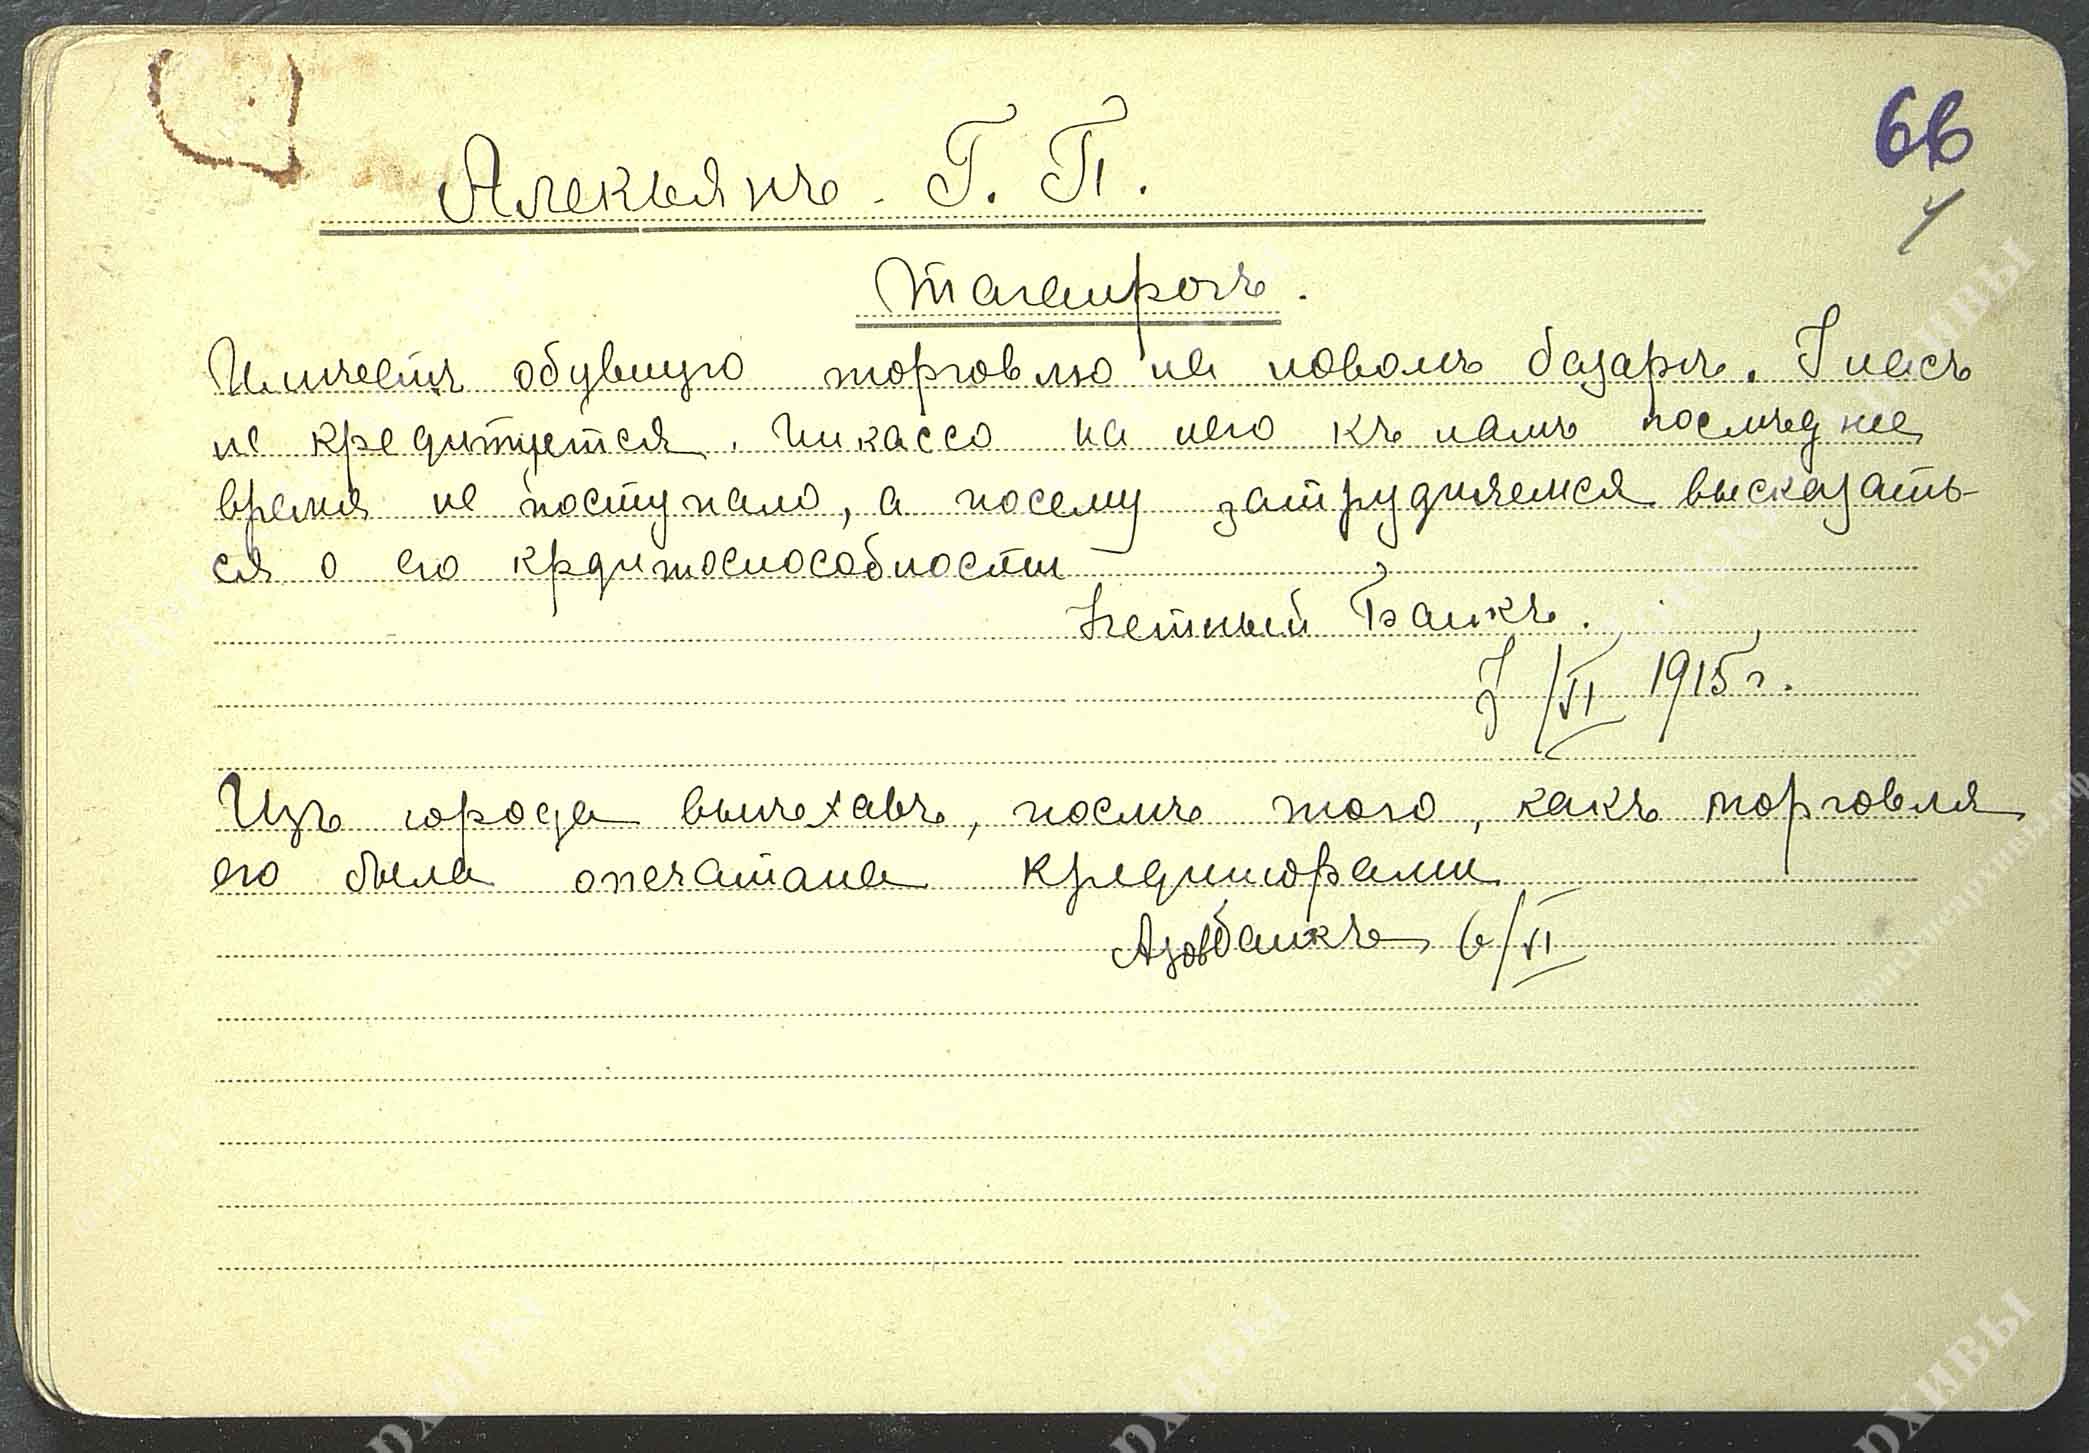 66
Алекьянъ Г. П.
Таганрогъ.
Имѣетъ обувную торговлю на новомъ базарѣ. У насъ
не кредитуется. Инкассо на него къ намъ последнее
время не поступало, а посему затрудняемся высказать-
ся о его крдитоспособности
Банкъ.
/VI 1915 г.
Изъ города выѣхавъ, послѣ того, какъ торговля
его была опечатана кредиторами
Азовбанкъ 6/VI